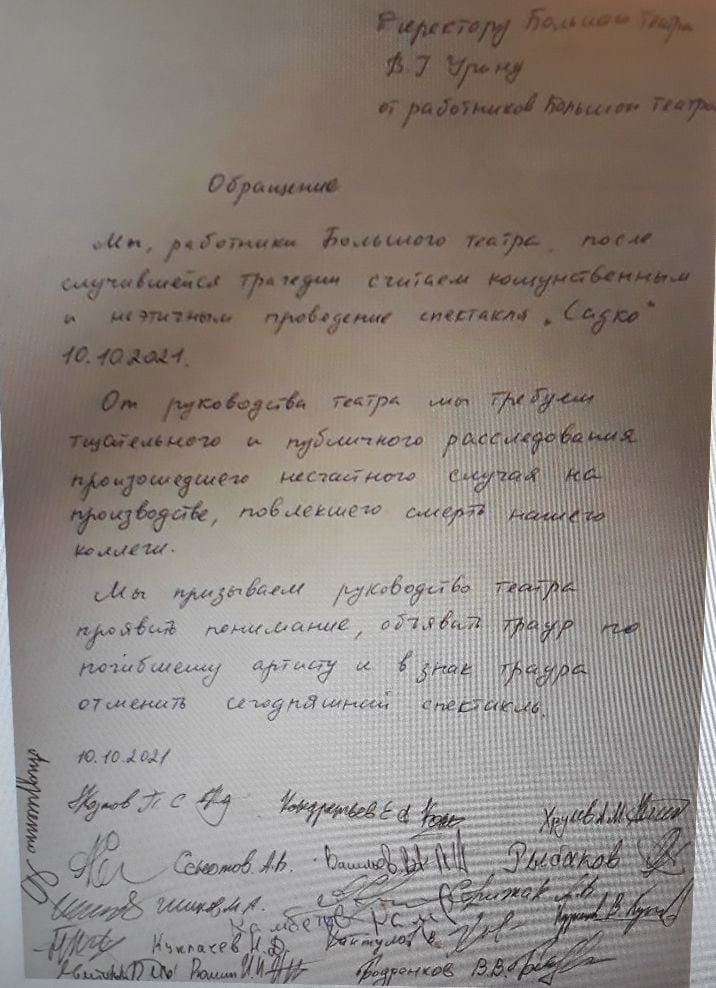 Директору Большого театра
В.Г Урину
от работников Большого театра
Обращение
Мы, работники Большого театра, после
случившейся трагедии считаем кощунственным
и неэтичным проведение спектакля „Садко"
10.10.2021.
От руководства театра мы требуем
тщательного и публичного расследования
произошедшего несчастного случая на
производстве, повлекшего смерть нашего
коллеги.
Мы призываем руководство театра
проявить понимание, объявить траур по
погибшему артисту и в знак траура
отменить сегодняшний спектакль.
10.10.2021
П С Кондратьев Е А
А.В. Васильев В.А. Рыбаков
Шишков М.А.
Куклачев Н.Д.
В.В.